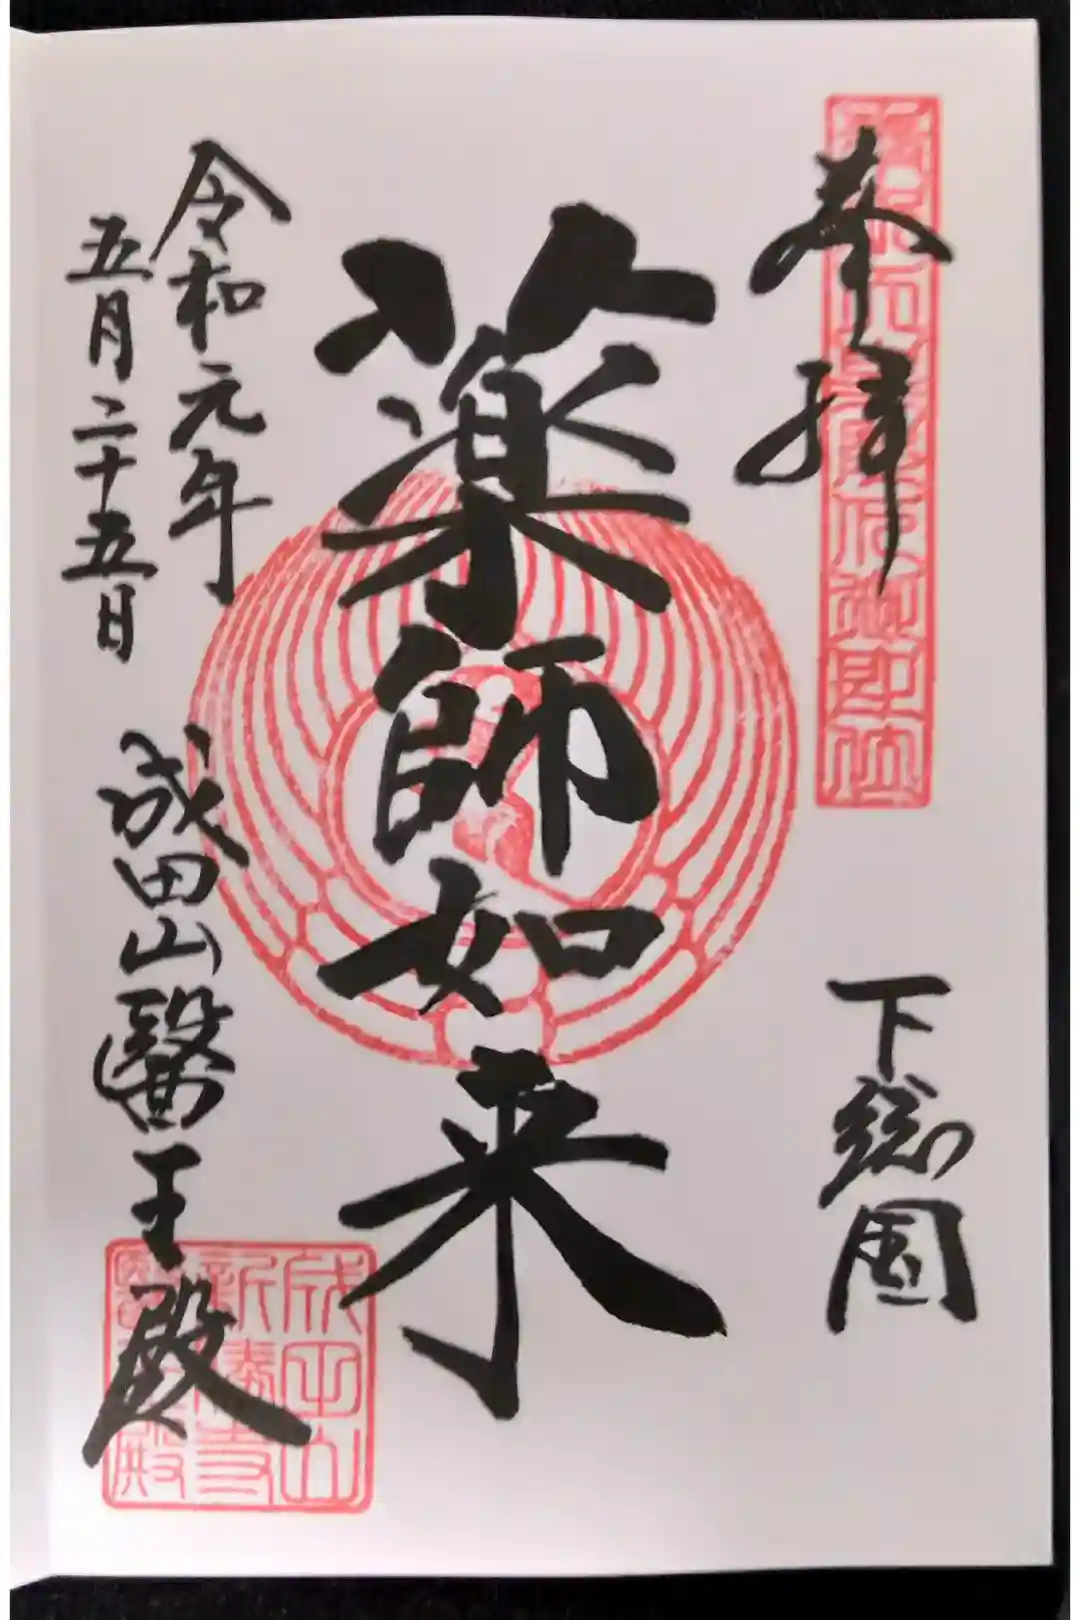 奉拝
下総國
薬師如来
令和元年
五月二十五日
成田山醫王殿
成田山
新勝寺